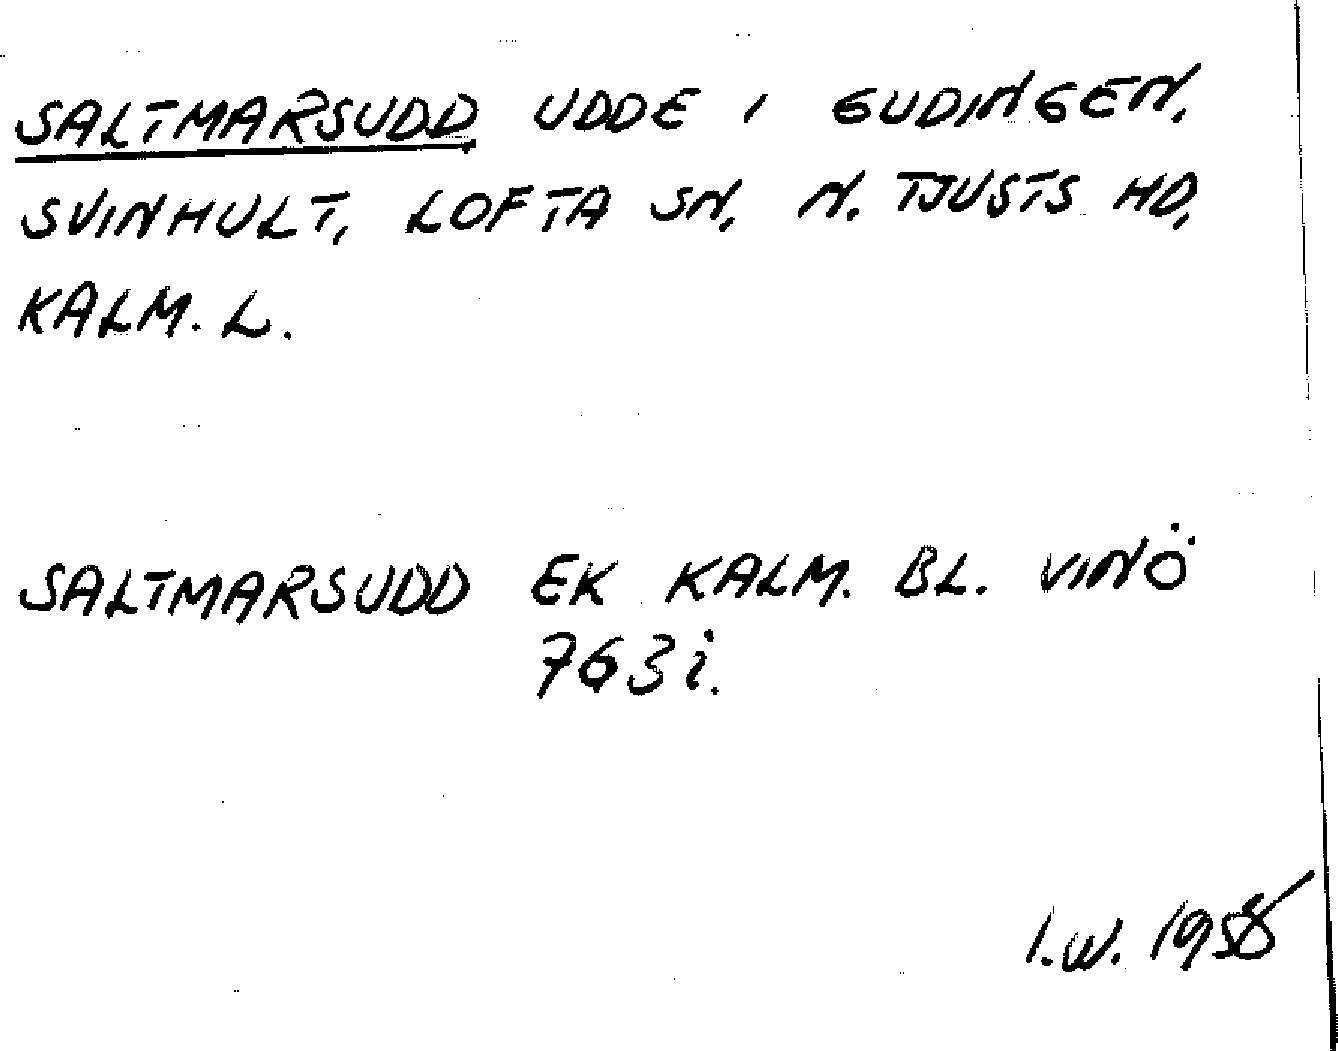 SALTMARSUDD UDDE I GUDINGEN,
SVINHULT, LOFTA SN, N. TJUSTS HD,
KALM. L.
SALTMARSUDD EK KALM. BL. VINÖ
763i.
I.W. 1958